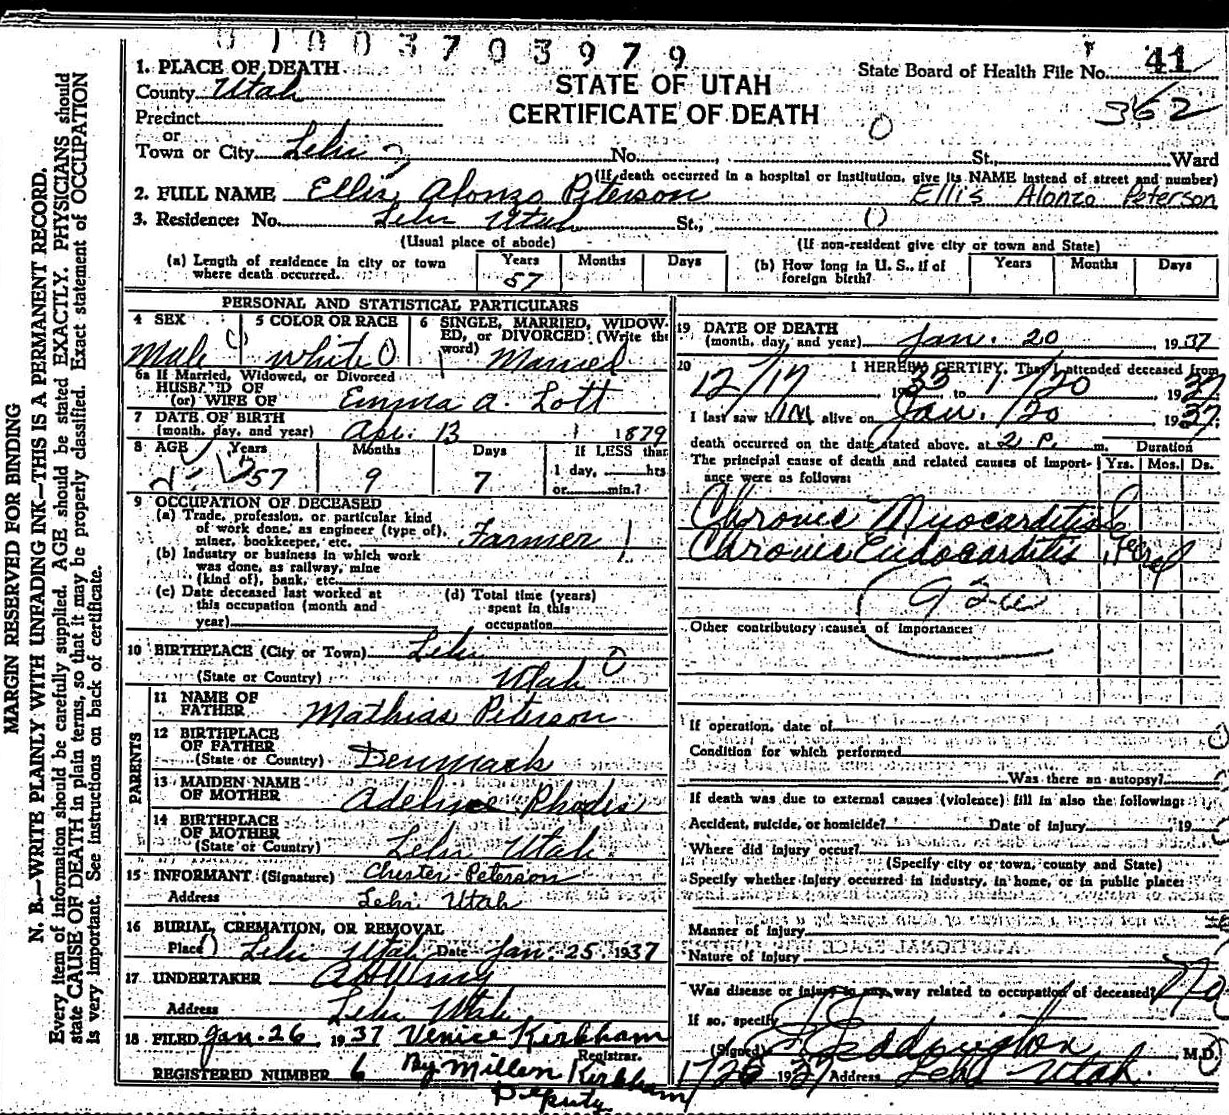 0 1 0 0 3 7 0 3 9 7 9
41
State Board of Health File No.
362
STATE OF UTAH
CERTIFICATE OF DEATH
1. PLACE OF DEATH
County Utah
Precinct
or
Town or City Lehi No. St., Ward
(If death occurred in a hospital or institution, give its NAME instead of street and number)
2. FULL NAME Ellis Alonzo Peterson Ellis Alonzo Peterson
3. Residence: No. Lehi Utah St.,
(Usual place of abode) (If non-resident give city or town and State)
(a) Length of residence in city or town where death occurred. Years 57 Months Days
(b) How long in U. S., if of foreign birth? Years Months Days
PERSONAL AND STATISTICAL PARTICULARS
4 SEX Male
5 COLOR OR RACE White
6 SINGLE, MARRIED, WIDOW-
ED, or DIVORCED (Write the
word) Married
6a If Married, Widowed, or Divorced
HUSBAND OF
(or) WIFE OF Emma A. Lott
7 DATE OF BIRTH
(month, day, and year) Apr. 13 1879
8 AGE Years 57 Months 9 Days 7
If LESS than
1 day, hrs
or min.?
9 OCCUPATION OF DECEASED
(a) Trade, profession, or particular kind
of work done, as engineer (type of),
miner, bookkeeper, etc. Farmer
(b) Industry or business in which work
was done, as railway, mine
(kind of), bank, etc.
(c) Date deceased last worked at
this occupation (month and
year)
(d) Total time (years)
spent in this
occupation
10 BIRTHPLACE (City or Town) Lehi
(State or Country) Utah
PARENTS
11 NAME OF
FATHER Mathias Peterson
12 BIRTHPLACE
OF FATHER
(State or Country) Denmark
13 MAIDEN NAME
OF MOTHER Adeline Rhodes
14 BIRTHPLACE
OF MOTHER
(State or Country) Lehi Utah
15 INFORMANT (Signature) Chester Peterson
Address Lehi Utah
16 BURIAL, CREMATION, OR REMOVAL
Place Lehi Utah Date Jan. 25 1937
17 UNDERTAKER
Address Lehi Utah
18 FILED Jan. 26 1937 Venice Kirkham
Registrar.
REGISTERED NUMBER 6 By Millen Kirkham
Deputy
19 DATE OF DEATH
(month, day, and year) Jan. 20 1937
20 I HEREBY CERTIFY, That I attended deceased from
12/17 1933 to 1/20 1937
I last saw him alive on Jan. 20 1937
death occurred on the date stated above, at 2 P. m. Duration
The principal cause of death and related causes of import-
ance were as follows: Yrs. Mos. Ds.
Chronic Myocarditis
Chronic Endocarditis
Other contributory causes of importance:
If operation, date of
Condition for which performed
Was there an autopsy?
If death was due to external causes (violence) fill in also the following:
Accident, suicide, or homicide? Date of injury , 19
Where did injury occur?
(Specify city or town, county and State)
Specify whether injury occurred in industry, in home, or in public place:
Manner of injury
Nature of injury
Was disease or injury in any way related to occupation of deceased? No
If so, specify
(Signed) Eddington M.D.
1/26 1937 Address Lehi Utah.
MARGIN RESERVED FOR BINDING
N. B.—WRITE PLAINLY WITH UNFADING INK—THIS IS A PERMANENT RECORD.
Every item of information should be carefully supplied. AGE should be stated EXACTLY. PHYSICIANS should
state CAUSE OF DEATH in plain terms, so that it may be properly classified. Exact statement of OCCUPATION
is very important. See instructions on back of certificate.